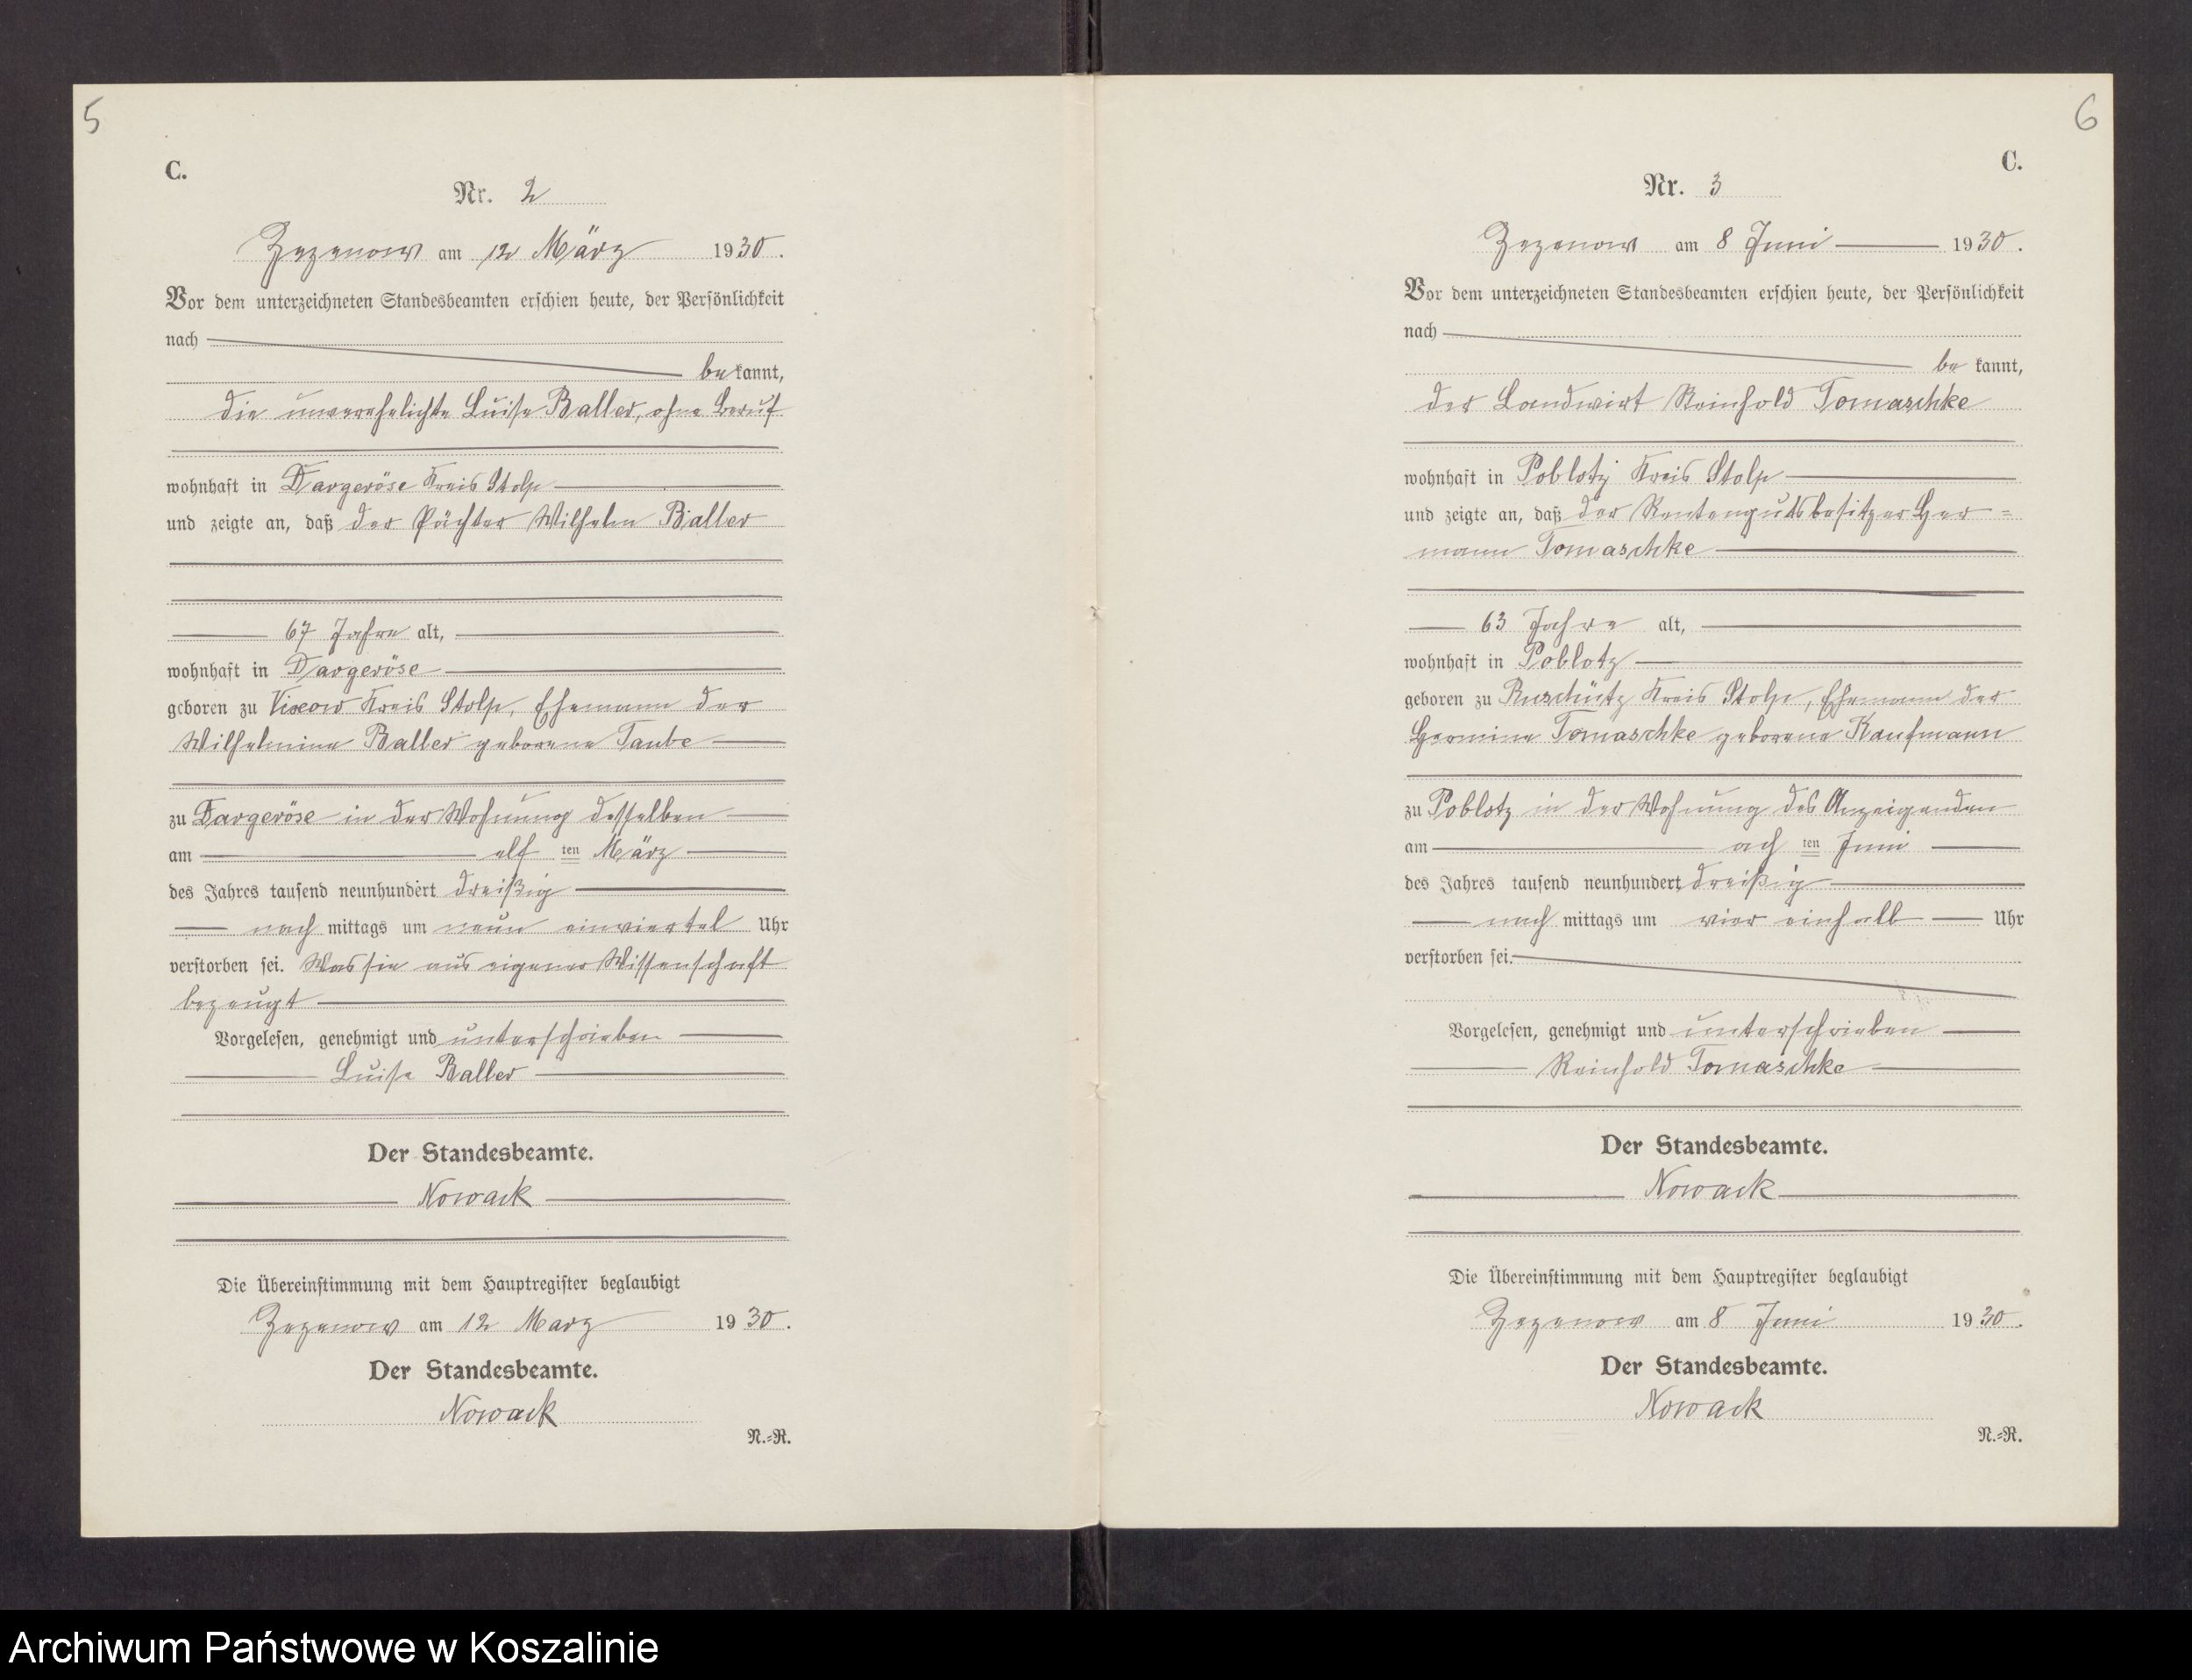 5
C.
Nr. 2
Zezenow am 12 März 1930.
Vor dem unterzeichneten Standesbeamten erschien heute, der Persönlichkeit
nach
bekannt,
die unverehelichte Luise Baller, ohne Beruf
wohnhaft in Dargeröse Kreis Stolp
und zeigte an, daß der Pächter Wilhelm Baller
67 Jahre alt,
wohnhaft in Dargeröse
geboren zu Vixow Kreis Stolp, Ehemann der
Wilhelmine Baller geborene Taube
zu Dargeröse in der Wohnung desselben
am elf ten März
des Jahres tausend neunhundert dreißig
nach mittags um neun einviertel Uhr
verstorben sei. Was sie aus eigener Wissenschaft
bezeugt
Vorgelesen, genehmigt und unterschrieben
Luise Baller
Der Standesbeamte.
Nowack
Die Übereinstimmung mit dem Hauptregister beglaubigt
Zezenow am 12 März 1930.
Der Standesbeamte.
Nowack
N.=R.
6
C.
Nr. 3
Zezenow am 8 Juni 1930.
Vor dem unterzeichneten Standesbeamten erschien heute, der Persönlichkeit
nach
be kannt,
der Landwirt Reinhold Tomaschke
wohnhaft in Poblotz Kreis Stolp
und zeigte an, daß der Rentengutsbesitzer Her=
mann Tomaschke
63 Jahre alt,
wohnhaft in Poblotz
geboren zu Ruschütz Kreis Stolp, Ehemann der
Hermine Tomaschke geborene Kaufmann
zu Poblotz in der Wohnung des Anzeigenden
am ach ten Juni
des Jahres tausend neunhundert dreißig
nach mittags um vier einhalb Uhr
verstorben sei.
Vorgelesen, genehmigt und unterschrieben
Reinhold Tomaschke
Der Standesbeamte.
Nowack
Die Übereinstimmung mit dem Hauptregister beglaubigt
Zezenow am 8 Juni 1930.
Der Standesbeamte.
Nowack
N.=R.
Archiwum Państwowe w Koszalinie